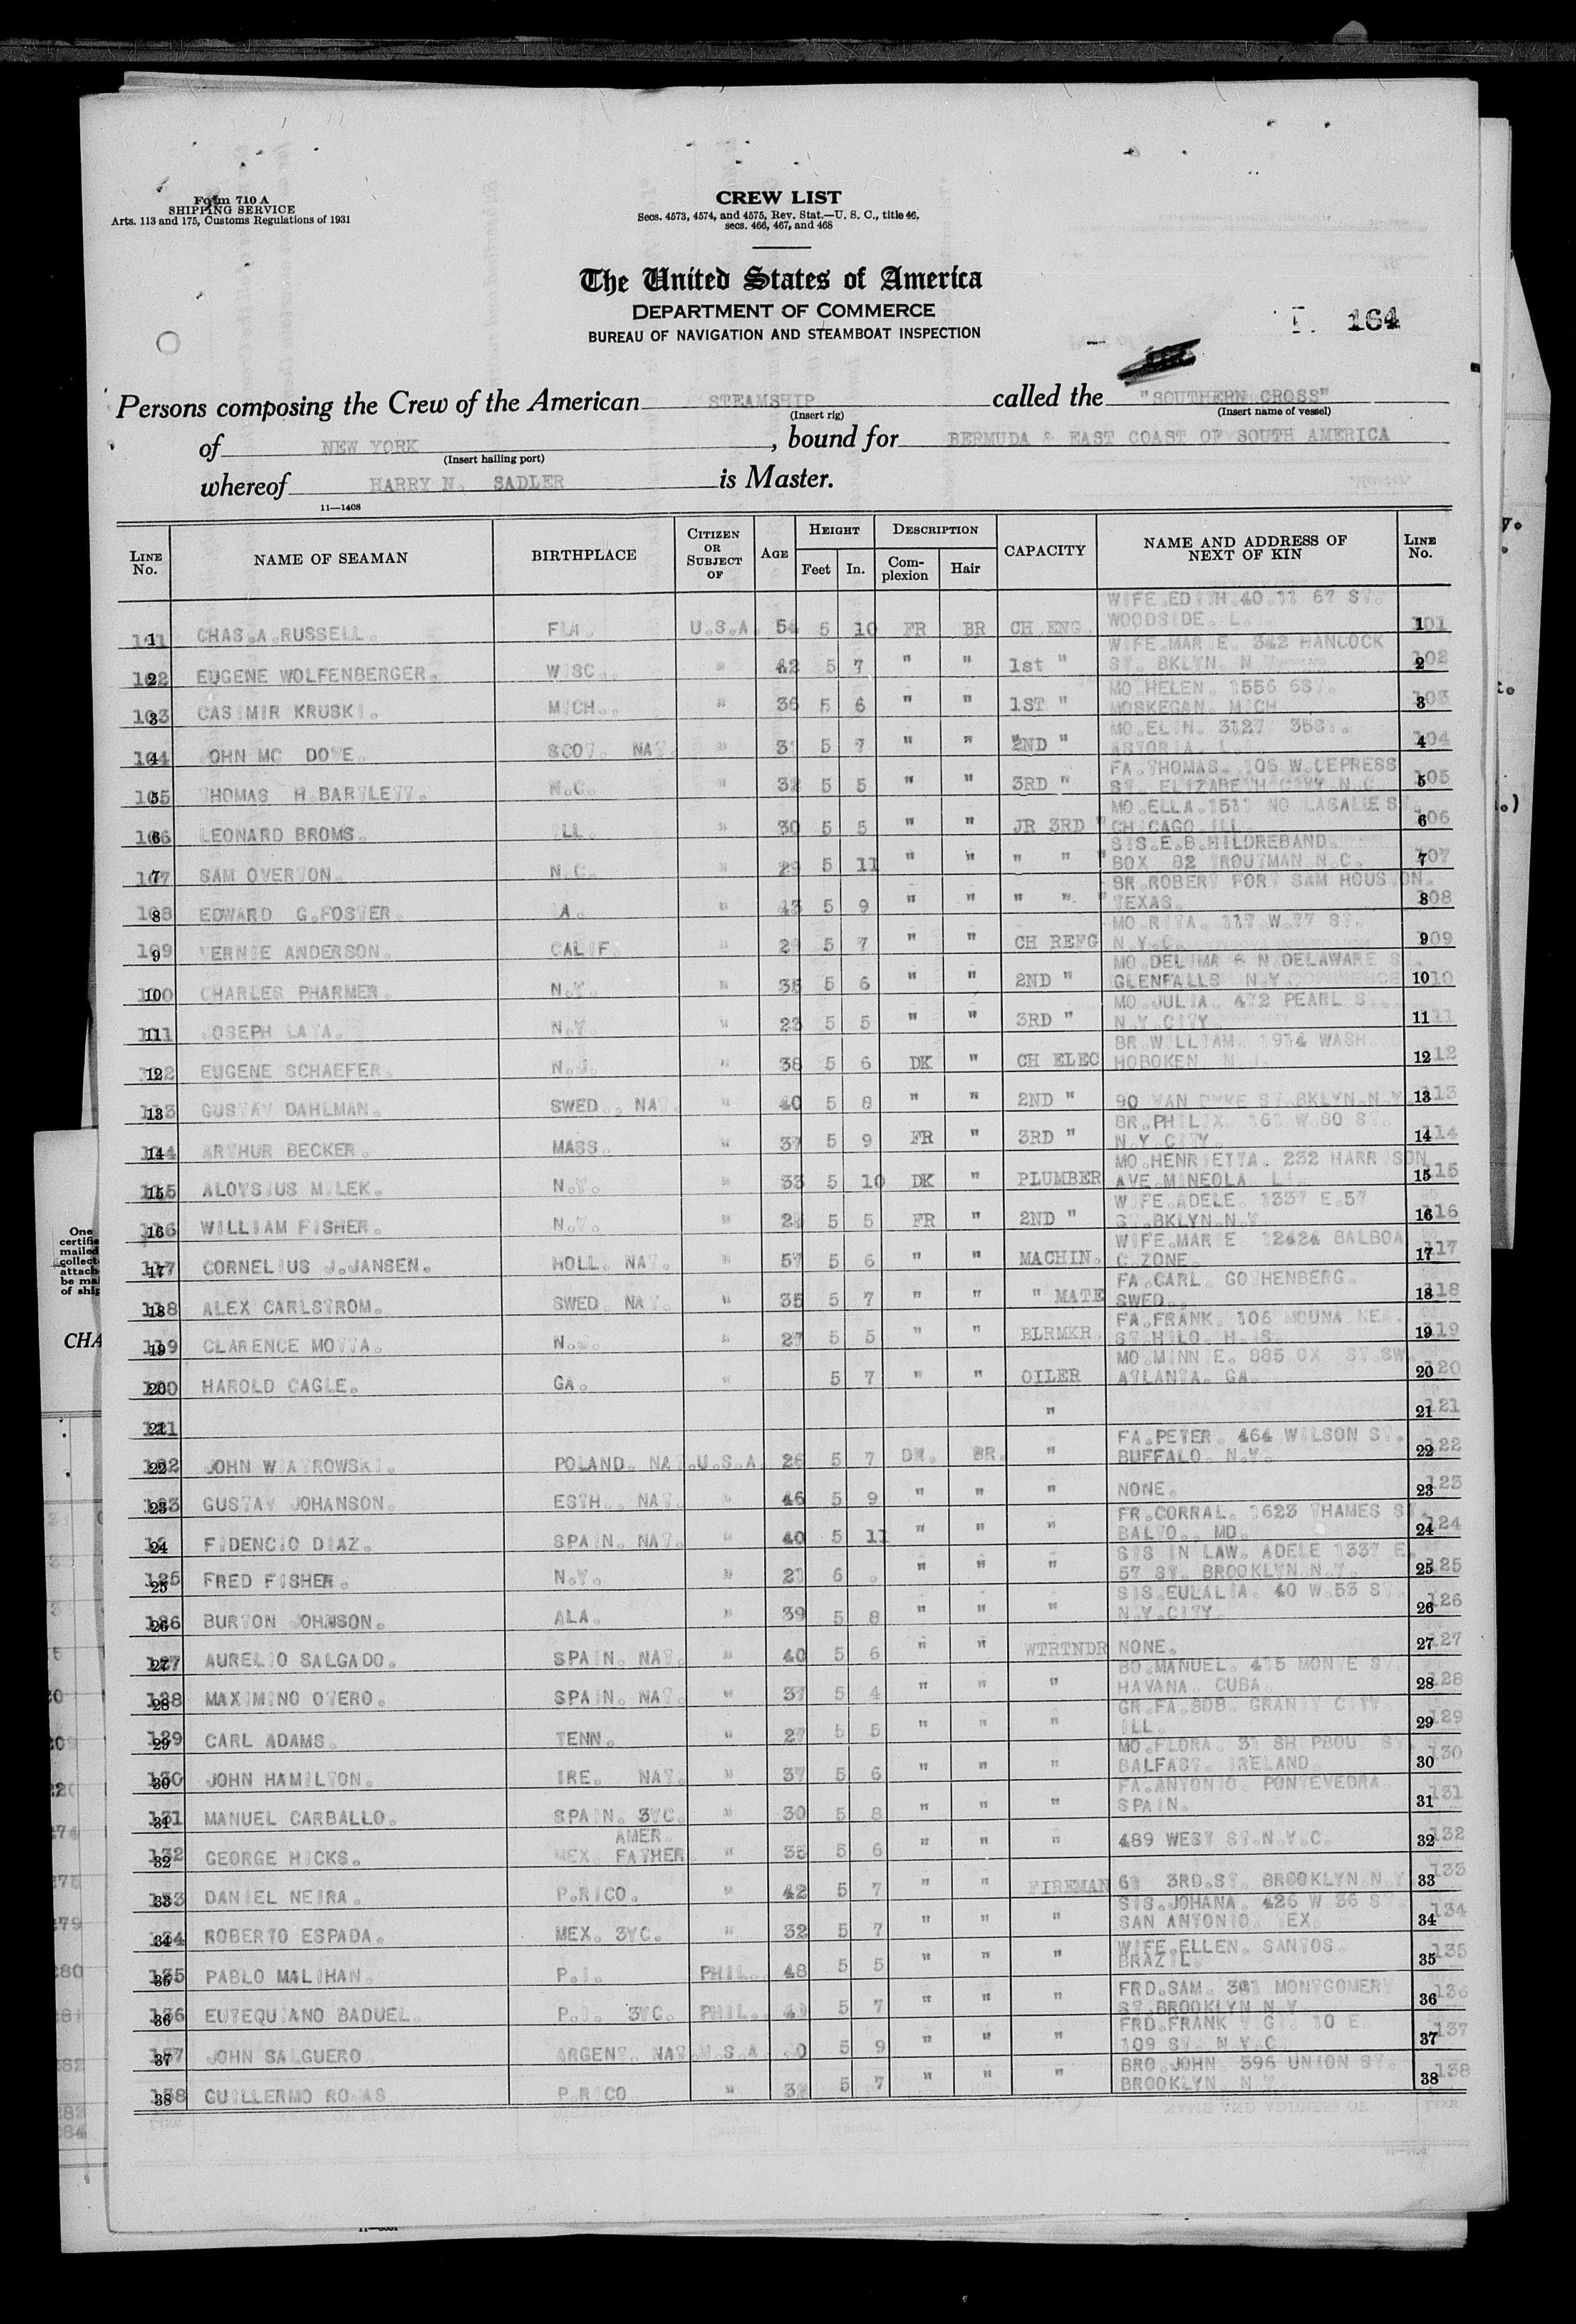 Form 710 A
SHIPPING SERVICE
Arts. 113 and 175, Customs Regulations of 1931
CREW LIST
Secs. 4573, 4574, and 4575, Rev. Stat.—U. S. C., title 46,
secs. 466, 467, and 468
The United States of America
DEPARTMENT OF COMMERCE
BUREAU OF NAVIGATION AND STEAMBOAT INSPECTION
164
Persons composing the Crew of the American STEAMSHIP called the "SOUTHERN CROSS"
(Insert rig) (Insert name of vessel)
of NEW YORK, bound for BERMUDA & EAST COAST OF SOUTH AMERICA
(Insert hailing port)
whereof HARRY N. SADLER is Master.
11—1408
LINE No. NAME OF SEAMAN BIRTHPLACE CITIZEN OR SUBJECT OF AGE HEIGHT Feet In. DESCRIPTION Complexion Hair CAPACITY NAME AND ADDRESS OF NEXT OF KIN LINE No.
WIFE.EDITH.40.11 67 ST.
1 CHAS.A.RUSSELL. FLA. U.S.A. 54 5 10 FR BR CH ENG. WOODSIDE. L. 1 101
WIFE.MARIE. 342 HANCOCK
102 2 EUGENE WOLFENBERGER. WISC. " 42 5 7 " " 1st " ST. BKLYN. N.Y. 2 102
MO.HELEN. 1556 6ST.
103 3 CASIMIR KRUSKI. MICH. " 36 5 6 " " 1ST " MOSKEGAN. MICH 3 103
MO.ELIN. 3127 35ST.
104 4 JOHN MC DOVE. SCOT. NAT. " 5 7 " " 2ND " ASTORIA. L.I. 4 104
FA.THOMAS. 106 W.CEPRESS
105 5 THOMAS H.BARTLETT. N.C. " 32 5 5 " " 3RD " ST. ELIZABETH CITY N.C. 5 105
MO.ELLA.1511 NO LASALLE ST.
106 6 LEONARD BROMS. ILL. " 30 5 5 " " JR 3RD " CHICAGO ILL. 6 106
SIS.E.B.HILDREBAND.
107 7 SAM OVERTON. N.C. " 29 5 11 " " " " " BOX 82 TROUTMAN N.C. 7 107
BR.ROBERT FORT SAM HOUSTON.
108 8 EDWARD G.FOSTER. " 43 5 9 " " " " " TEXAS. 8 108
MO.RITA. 117 W.77 ST.
109 9 VERNIE ANDERSON. CALIF. " 5 7 " " CH REFG N.Y.C. 9 109
MO.DELIMA 6 N DELAWARE ST.
10 CHARLES PHARMER. N.Y. " 35 5 6 " " 2ND " GLENFALLS N.Y. 10 110
MO.JULIA. 472 PEARL ST.
11 JOSEPH LATA. N.Y. " 23 5 5 " " 3RD " N.Y.CITY 11 111
BR.WILLIAM. 1914 WASH.
12 EUGENE SCHAEFER. N.J. " 38 5 6 DK " CH ELEC HOBOKEN N.J. 12 112
113 13 GUSTAV DAHLMAN. SWED. NAT. " 40 5 8 " " 2ND " 90 VAN DYKE ST.BKLYN.N.Y. 13 113
BR.PHILIX. 161 W.80 ST.
14 ARTHUR BECKER. MASS. " 37 5 9 FR " 3RD " N.Y.CITY. 14 114
MO.HENRIETTA. 232 HARRISON
115 15 ALOYSIUS MILEK. N.Y. " 33 5 10 DK " PLUMBER AVE MINEOLA LI. 15 115
WIFE.ADELE. 1337 E.57
116 16 WILLIAM FISHER. N.Y. " 5 5 FR " 2ND " ST.BKLYN.N.Y. 16 116
WIFE.MARIE. 12424 BALBOA
117 17 CORNELIUS J.JANSEN. HOLL. NAT. " 57 5 6 " " MACHIN. C.ZONE. 17 117
FA.CARL. GOTHENBERG.
118 18 ALEX CARLSTROM. SWED. NAT. " 35 5 7 " " " MATE SWED. 18 118
FA.FRANK. 106 MOUNA KEA.
119 19 CLARENCE MOTTA. N.J. " 27 5 5 " " BLRMKR. ST.HILO. H.IS. 19 119
MO.MINNIE. 885 OX ST.SW.
20 HAROLD CAGLE. GA. " 5 7 " " OILER ATLANTA. GA. 20 120
121 21 " 21 121
FA.PETER. 464 WILSON ST.
22 JOHN WIATROWSKI. POLAND. NAT. U.S.A. 26 5 7 DK. BR. " BUFFALO. N.Y. 22 122
23 GUSTAV JOHANSON. ESTH. NAT. " 46 5 9 " " " NONE. 23 123
FR.CORRAL. 1623 THAMES ST.
24 FIDENCIO DIAZ. SPAIN. NAT. " 40 5 11 " " " BALTO., MD. 24 124
SIS IN LAW. ADELE 1337 E.
125 25 FRED FISHER. N.Y. " 21 6 . " " " 57 ST. BROOKLYN N.Y. 25 125
SIS.EULALIA. 40 W.53 ST.
126 26 BURTON JOHNSON. ALA. " 39 5 8 " " " N.Y.CITY. 26 126
127 27 AURELIO SALGADO. SPAIN. NAT. " 40 5 6 " " WTRTNDR NONE. 27 127
BO.MANUEL. 415 MONTE ST.
128 28 MAXIMINO OTERO. SPAIN. NAT. " 37 5 4 " " " HAVANA. CUBA. 28 128
GR.FA.BOB. GRANIT CITY
129 29 CARL ADAMS. TENN. " 27 5 5 " " " ILL. 29 129
MO.FLORA. 31 SHIPBOUT ST.
130 30 JOHN HAMILTON. IRE. NAT. " 37 5 6 " " " BALFAST. IRELAND. 30 130
FA.ANTONIO. PONTEVEDRA.
131 31 MANUEL CARBALLO. SPAIN. 3YC. " 30 5 8 " " " SPAIN. 31 131
AMER.
132 32 GEORGE HICKS. MEX. FATHER. " 35 5 6 " " " 489 WEST ST.N.Y.C. 32 132
133 33 DANIEL NEIRA. P.RICO. " 42 5 7 " " FIREMAN 61 3RD.ST. BROOKLYN.N.Y. 33 133
SIS.JOHANA. 426 W 36 ST
134 34 ROBERTO ESPADA. MEX. 3YC. " 32 5 7 " " " SAN ANTONIO. TEX. 34 134
WIFE.ELLEN. SANTOS.
135 35 PABLO MALIHAN. P.I. PHIL. 48 5 5 " " " BRAZIL. 35 135
FRD.SAM. 301 MONTGOMERY
136 36 EUTEQUIANO BADUEL. P.I. 3YC. PHIL. 5 7 " " " ST.BROOKLYN N.Y. 36 136
FRD.FRANK 10 E.
137 37 JOHN SALGUERO. ARGENT. NAT. U.S.A. 5 9 " " " 109 ST. N.Y.C. 37 137
BRO.JOHN. 396 UNION ST.
138 38 GUILLERMO ROJAS P.RICO " 5 7 " " " BROOKLYN. N.Y. 38 138
One
certifie
mailed
collect
attach
be mai
of ship
CHA